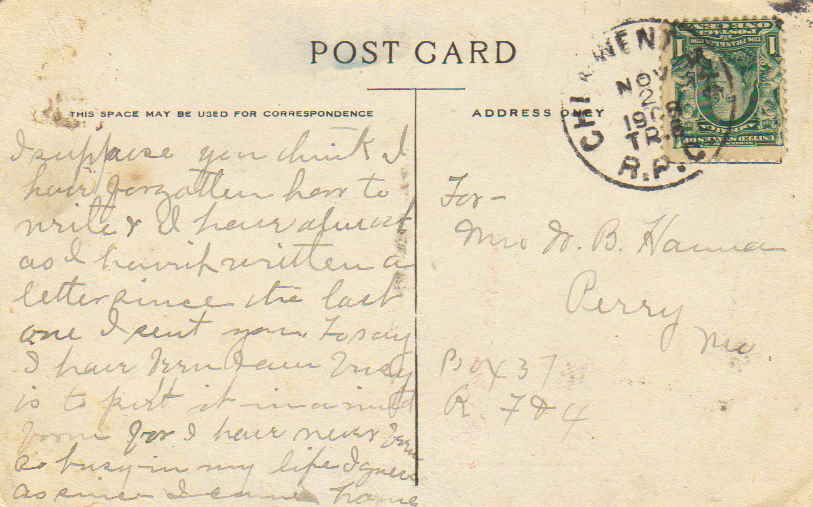 POST CARD
THIS SPACE MAY BE USED FOR CORRESPONDENCE
ADDRESS ONLY
I suppose you think I
have forgotten how to
write & I have almost
as I havn't written a
letter since the last
one I sent you. To say
I have been busy
is to put it in a mild
form for I have never been
so busy in my life I guess
as since I came home
For-
Mrs W. B. Hanna
Perry
Mo
Box 437
R. 7 D 4
CHI & WENT
NOV
2
1908
TR. 8
R.P.O
POSTAGE
ONE CENT
1 1
UNITED STATES OF AMERICA